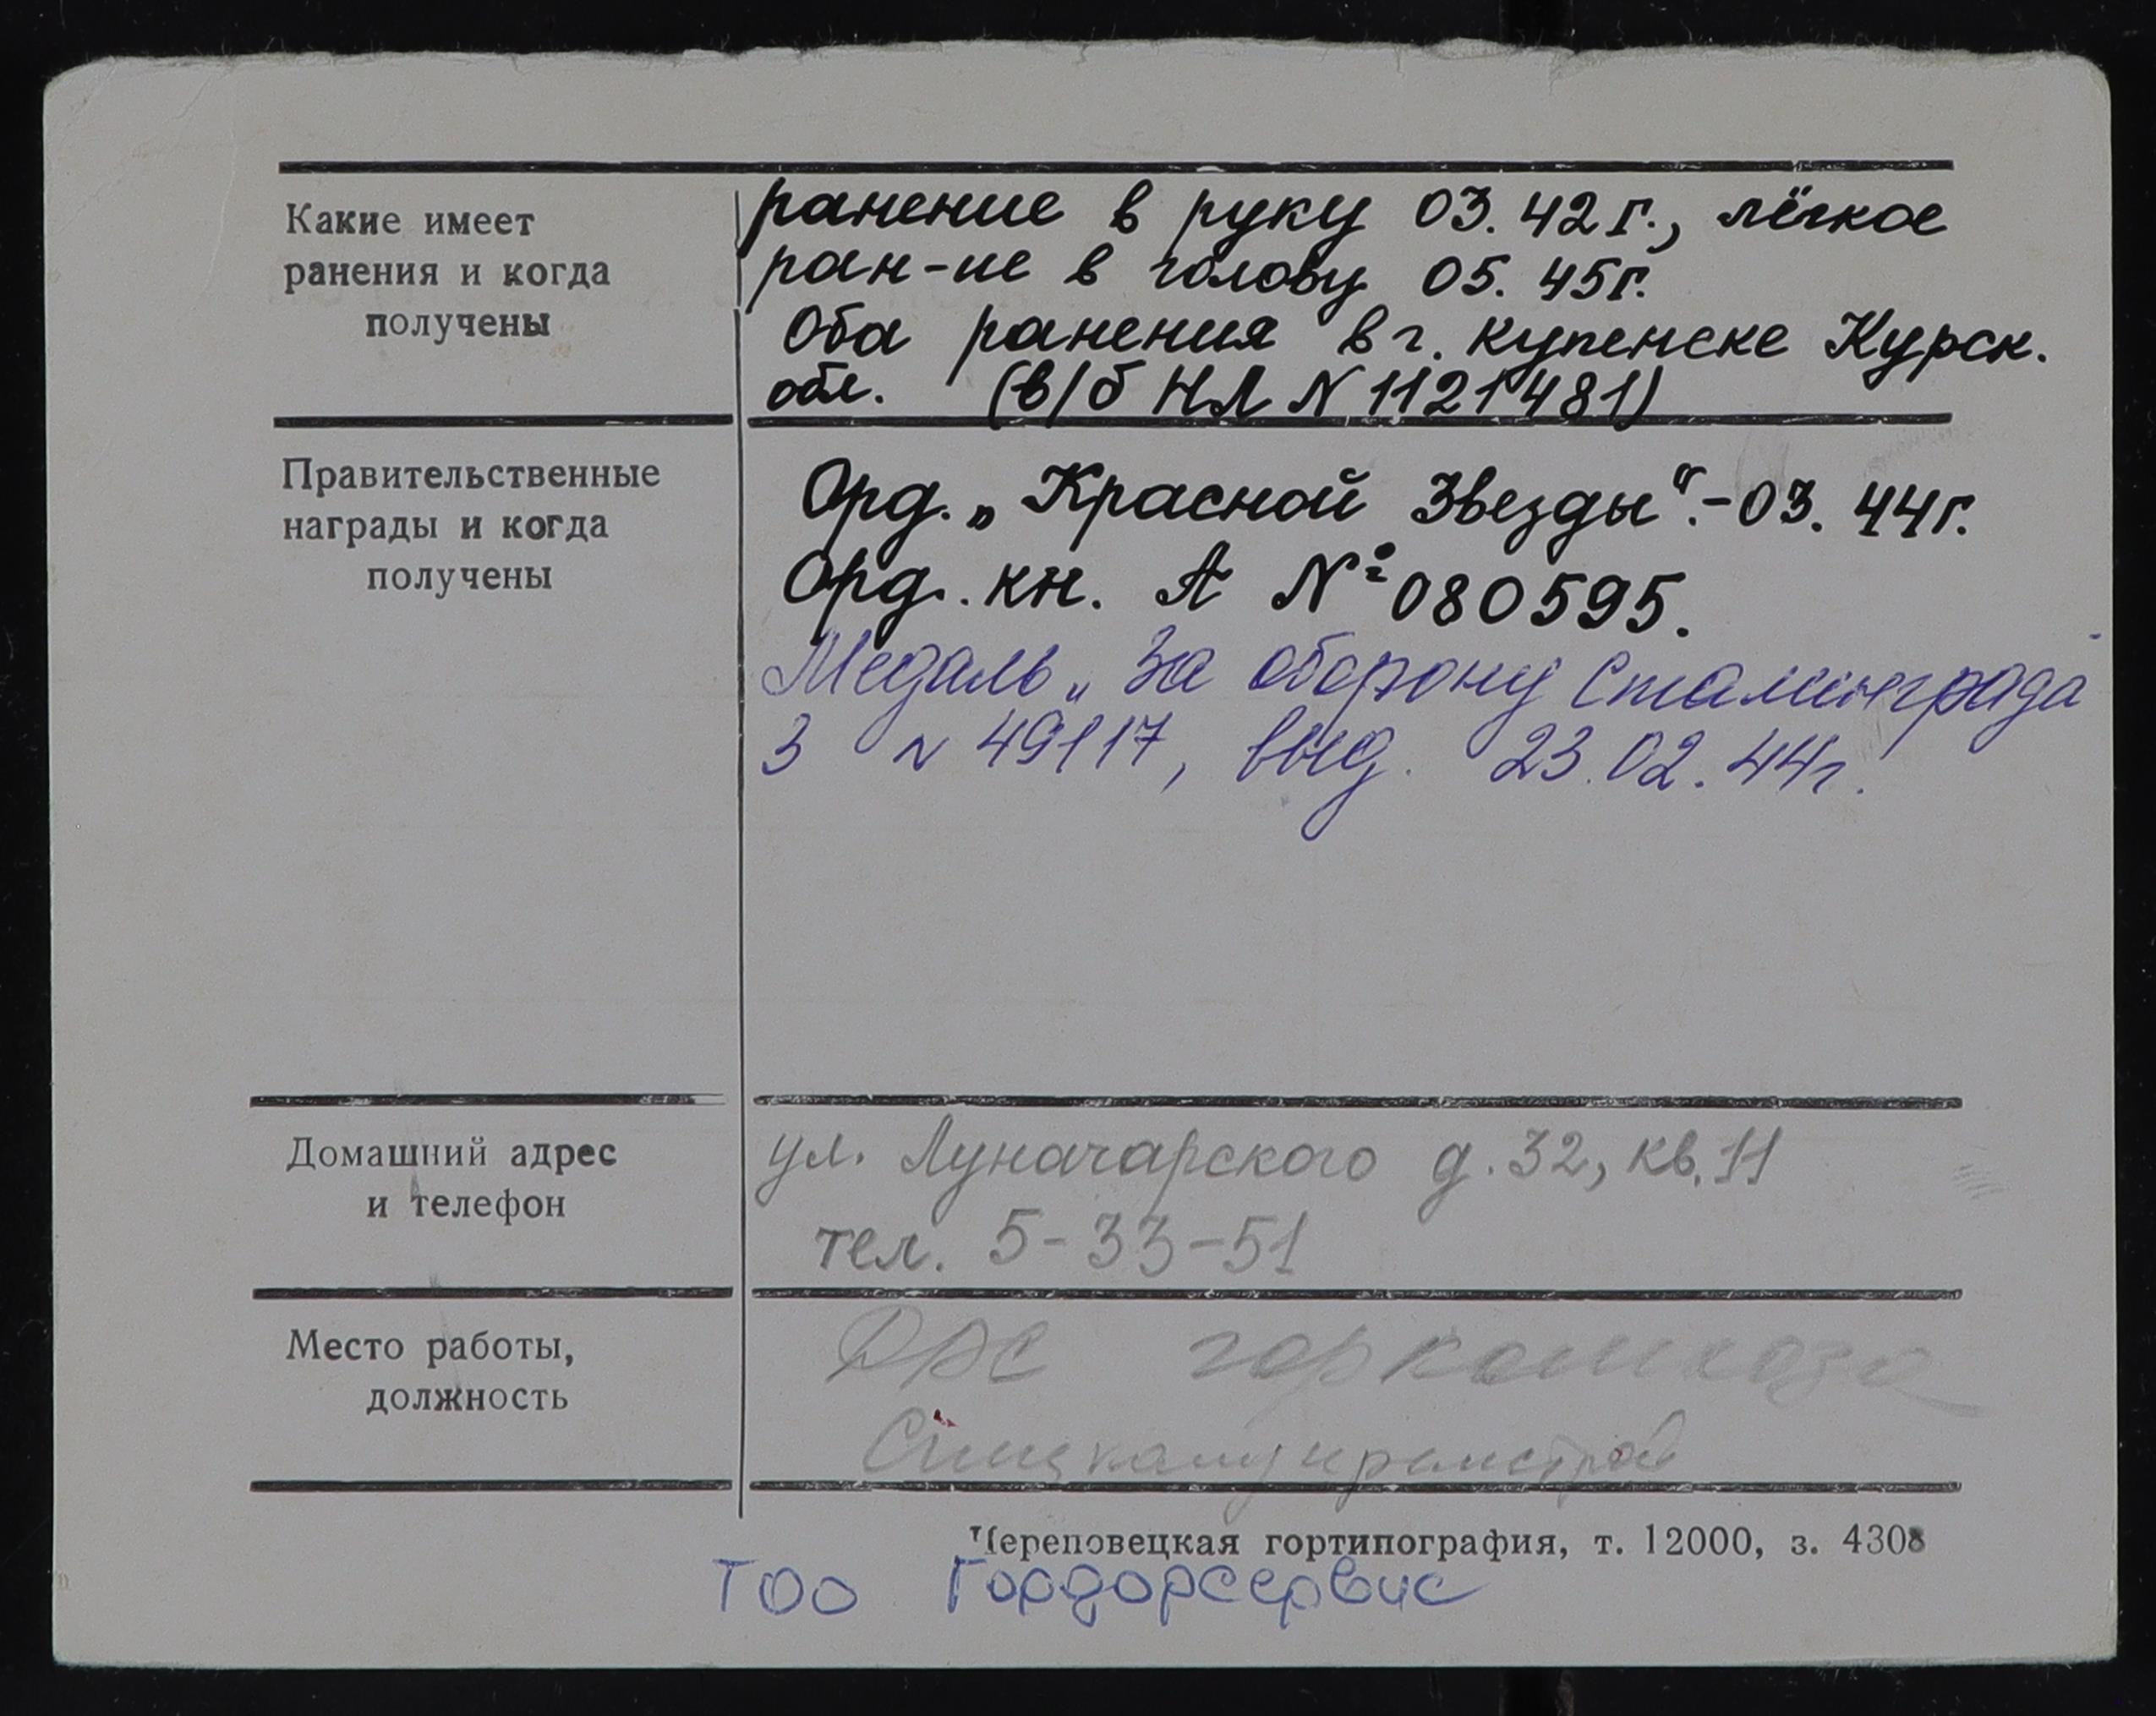 Какие имеет
ранения и когда
получены
ранение в руку 03.42г., лёгкое
ран-ие в голову 05.45г.
Оба ранения в г. Купенске Курск.
обл. (в/б НЛ N 1121481)
Правительственные
награды и когда
получены
Орд. „Красной Звезды“.-03.44г.
Орд. кн. А № 080595.
Медаль „За оборону Сталинграда"
З N 49117, выд. 23.02.44г.
Домашний адрес
и телефон
ул. Луначарского д.32, кв.11
тел. 5-33-51
Место работы,
должность
горкомхоза
Череповецкая гортипография, т. 12000, з. 4308
ТОО Гордорсервис